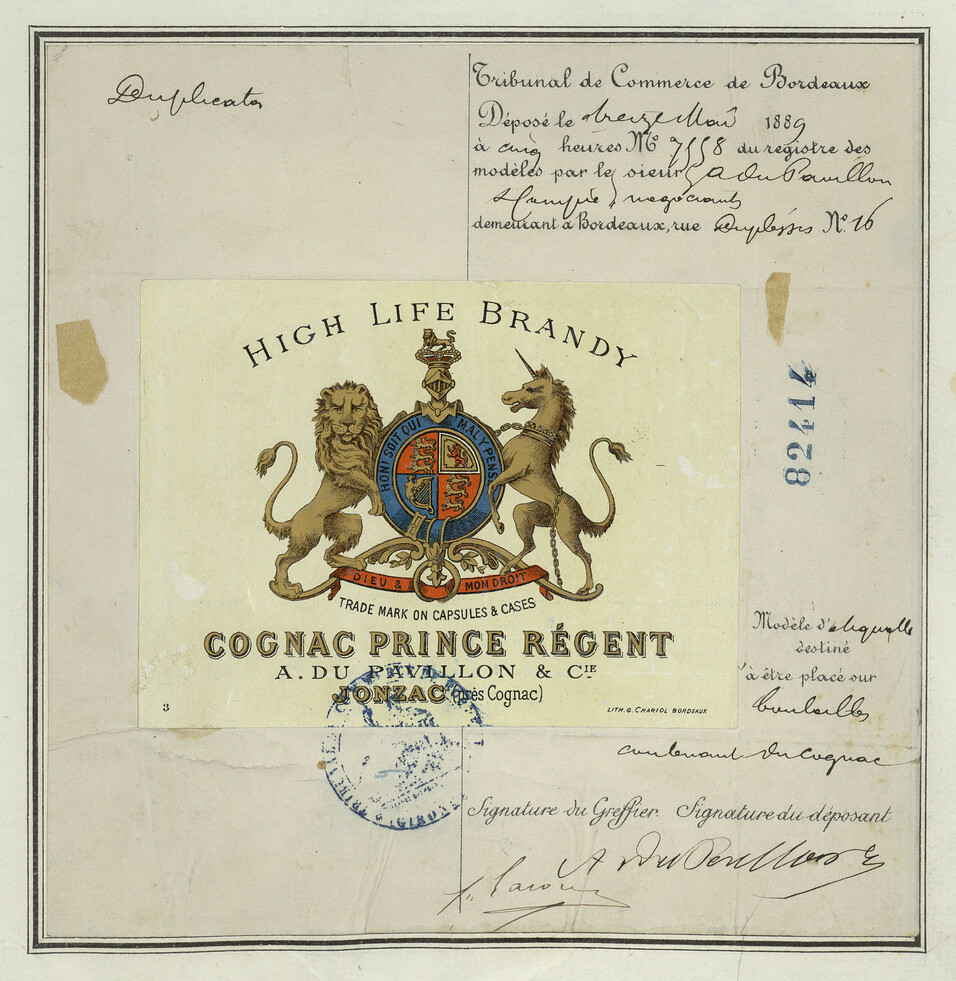 Duplicata
Tribunal de Commerce de Bordeaux
Déposé le treize Mai 1889
à cinq heures No 7558 du registre des
modèles par le sieur A du Pavillon
& Compie négociants
demeurant à Bordeaux, rue Duplessis No. 16
HIGH LIFE BRANDY
HONI SOIT QUI MAL Y PENS
DIEU & MON DROIT
TRADE MARK ON CAPSULES & CASES
COGNAC PRINCE RÉGENT
A. DU PAVILLON & CIE
JONZAC (près Cognac)
3
LITH. G. CHARIOL BORDEAUX
82414
Modèle d'étiquette
destiné
à être placé sur
bouteilles
contenant du Cognac
Signature du Greffier Signature du déposant
A du Pavillon